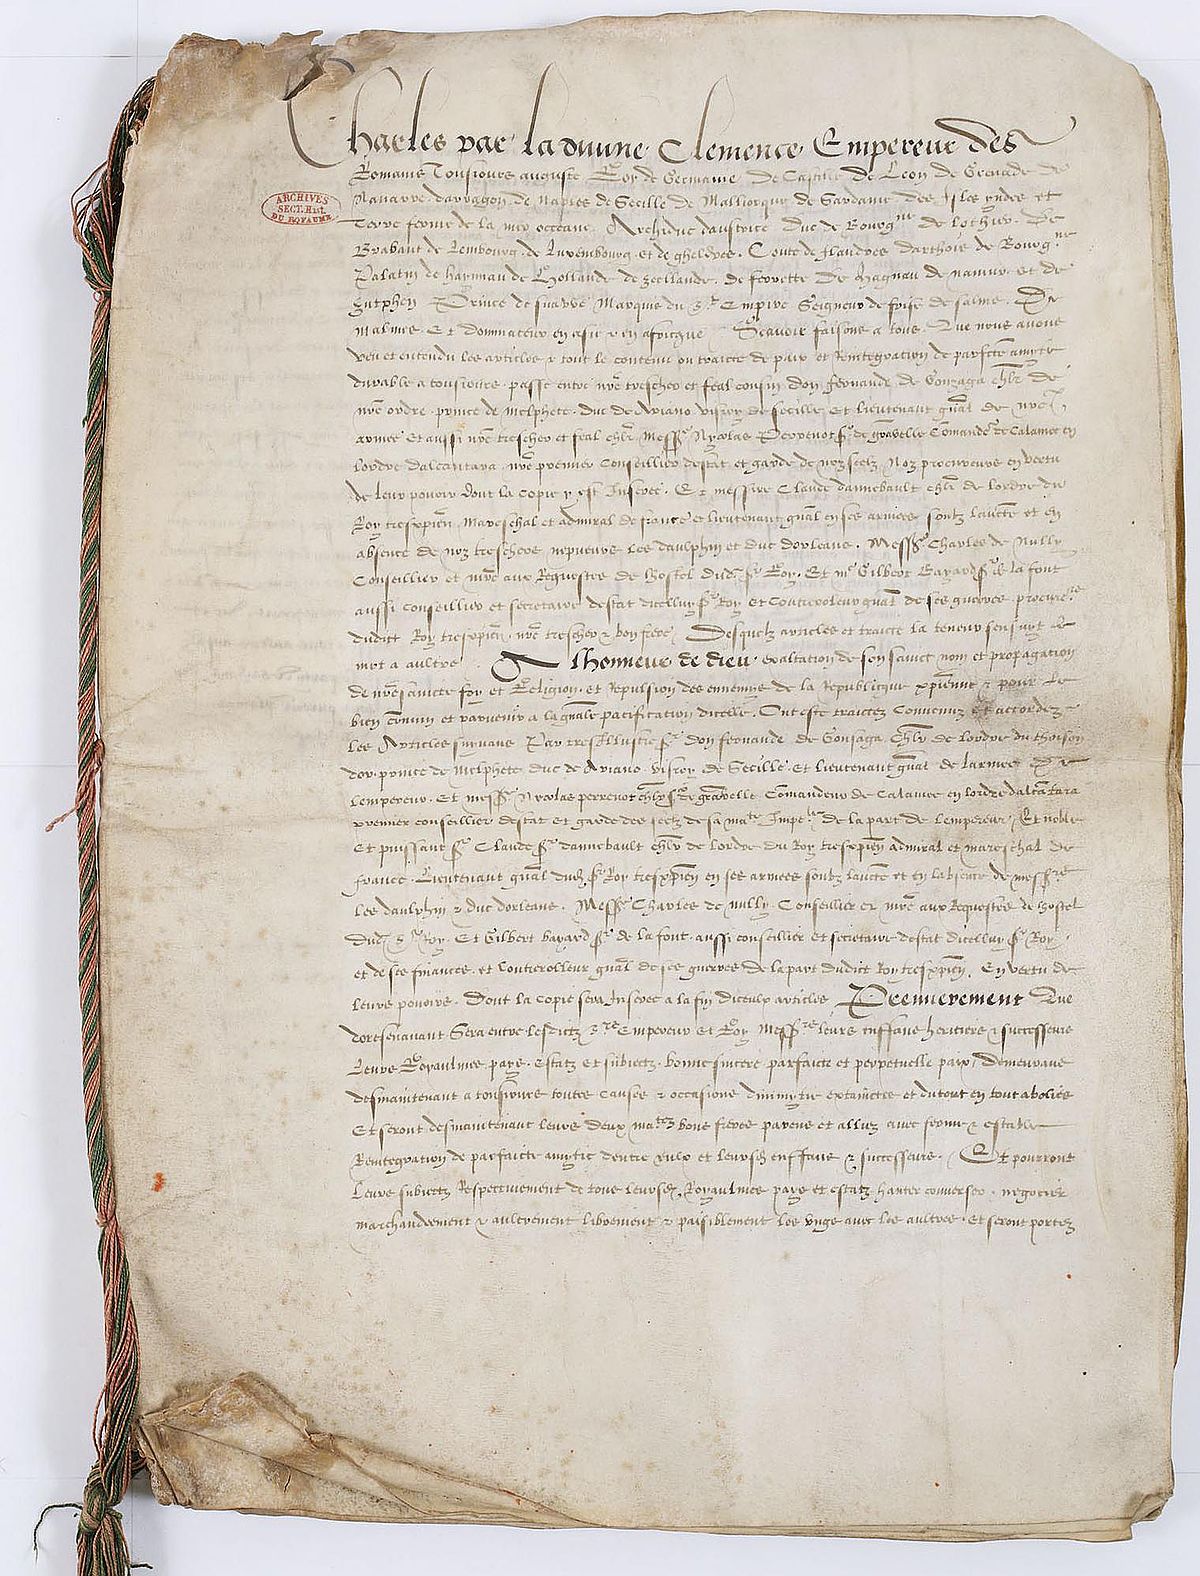 Charles par la divine Clemence Empereur des
Romains Tousiours auguste Roy de Germanie de Castille de Leon de Grenade de
Navarre darragon de Naples de Secille de Maillorque de Sardaine des Isles yndes et
Terre ferme de la mer occeane Archiduc daustrice Duc de Bourgne de Lothier De
Brabant de Lembourg de Luxembourg et de gheldres Conte de flandres darthois de Bourgne
Palatin de haynnau de Hollande de zeellande de ferrette De hagnau de namur et de
Zutphen Prince de suave Marquis du st Empire Seigneur de frise de salins De
malines Et dominateur en asie & en africque Scavoir faisons a tous Que nous avons
veu et entendu les articles & tout le contenu ou traicte de paix et Reintegration de parfecte amytie
durable a tousiours passe entre nre treschier et feal cousin don fernande de Gonzaga chlr de
nre ordre prince de Melphete duc de Ariano visroy de secille et lieutenant gnal de nre
armee et aussi nre treschier et feal chlr Messe Nycolas Perrenot sr de gravelle Comander de Calamec en
lordre dalcantara nre premier Conseillier destat et garde de noz seelz Noz procureurs en vertu
de leur pouoir dont la copie y est Inseree Et messire Claude dannebault chlr de lordre du
Roy trespien Mareschal et admiral de france et lieutenant gnal en ses armees soubz laucte et en
absence de noz treschers nepueurs les daulphin et duc dorleans Messe Charles de Nully
Conseillier et mre aux Requestes de lhostel dud sr Roy Et me Gilbert Bayard sr de la font
aussi conseillier et secretaire destat dicelluy sr Roy et Conterroleur gnal de ses guerres procure
dudit Roy trespien nre treschier & bon frere Desquelz articles et traicte la teneur sensuit de
mot a aultre A lhonneur de dieu exaltation de son sainct nom et propagation
de nre saincte foy et Religion et Repulsion des ennemys de la Republicque xpienne & pour le
bien comun et parvenir a la gnale pacification dicelle Ont este traictez Convenuz et accordez
Les Articles suivans Par tres Illustre sr don fernande de Gonsaga chlr de lordre du thoison
dor prince de Melphete duc de Ariano visroy de Secille et lieutenant gnal de larmee De
lempereur Et messe Nycolas perrenot chlr sr de gravelle Comandeur de Calamec en lordre dalcantara
premier conseillier destat et garde des seelz de sa mate Impele de la part de lempereur Et noble
Et puissant sr Claude sr dannebault chlr de lordre du Roy trespien admiral et mareschal de
france Lieutenant gnal dud sr Roy trespien en ses armees soubz laucte et en labsence de messrs
Les daulphin & duc dorleans Messe Charles de nully Conseillier et mre aux Requestes de lhostel
Dud sr Roy Et Gilbert bayard sr de la font aussi conseillier et secretaire destat dicelluy sr Roy
et de ses finances et Conterrolleur gnal de ses guerres de la part dudict Roy trespien En vertu de
leurs pouoirs Dont la copie sera Inseree a la fin diceulx articles Premierement Que
doresenavant Sera entre lesditz srs Empereur et Roy Messrs leurs enffans heritiers & successeurs
Leurs Royaulmes pays Estatz et subiectz bonne sincere parfaicte et perpetuelle paix Demeurans
desmaintenant a tousiours toutes causes & occasions dinimytie extainctes et du tout en tout abolies
Et seront desmaintenant leurs deux matez bons freres parens et alliez avec ferme & establie
Reintegration de parfaicte amytie dentre eulx et leursd enffans & successeurs Et pourront
Leurs subiectz Respectivement de tous leursd Royaulmes pays et estatz hanter converser negocier
marchandement & aultrement librement & paisiblement les ungs avec les aultres et seront portez
ARCHIVES
SECT. Hist.
DU ROYAUME